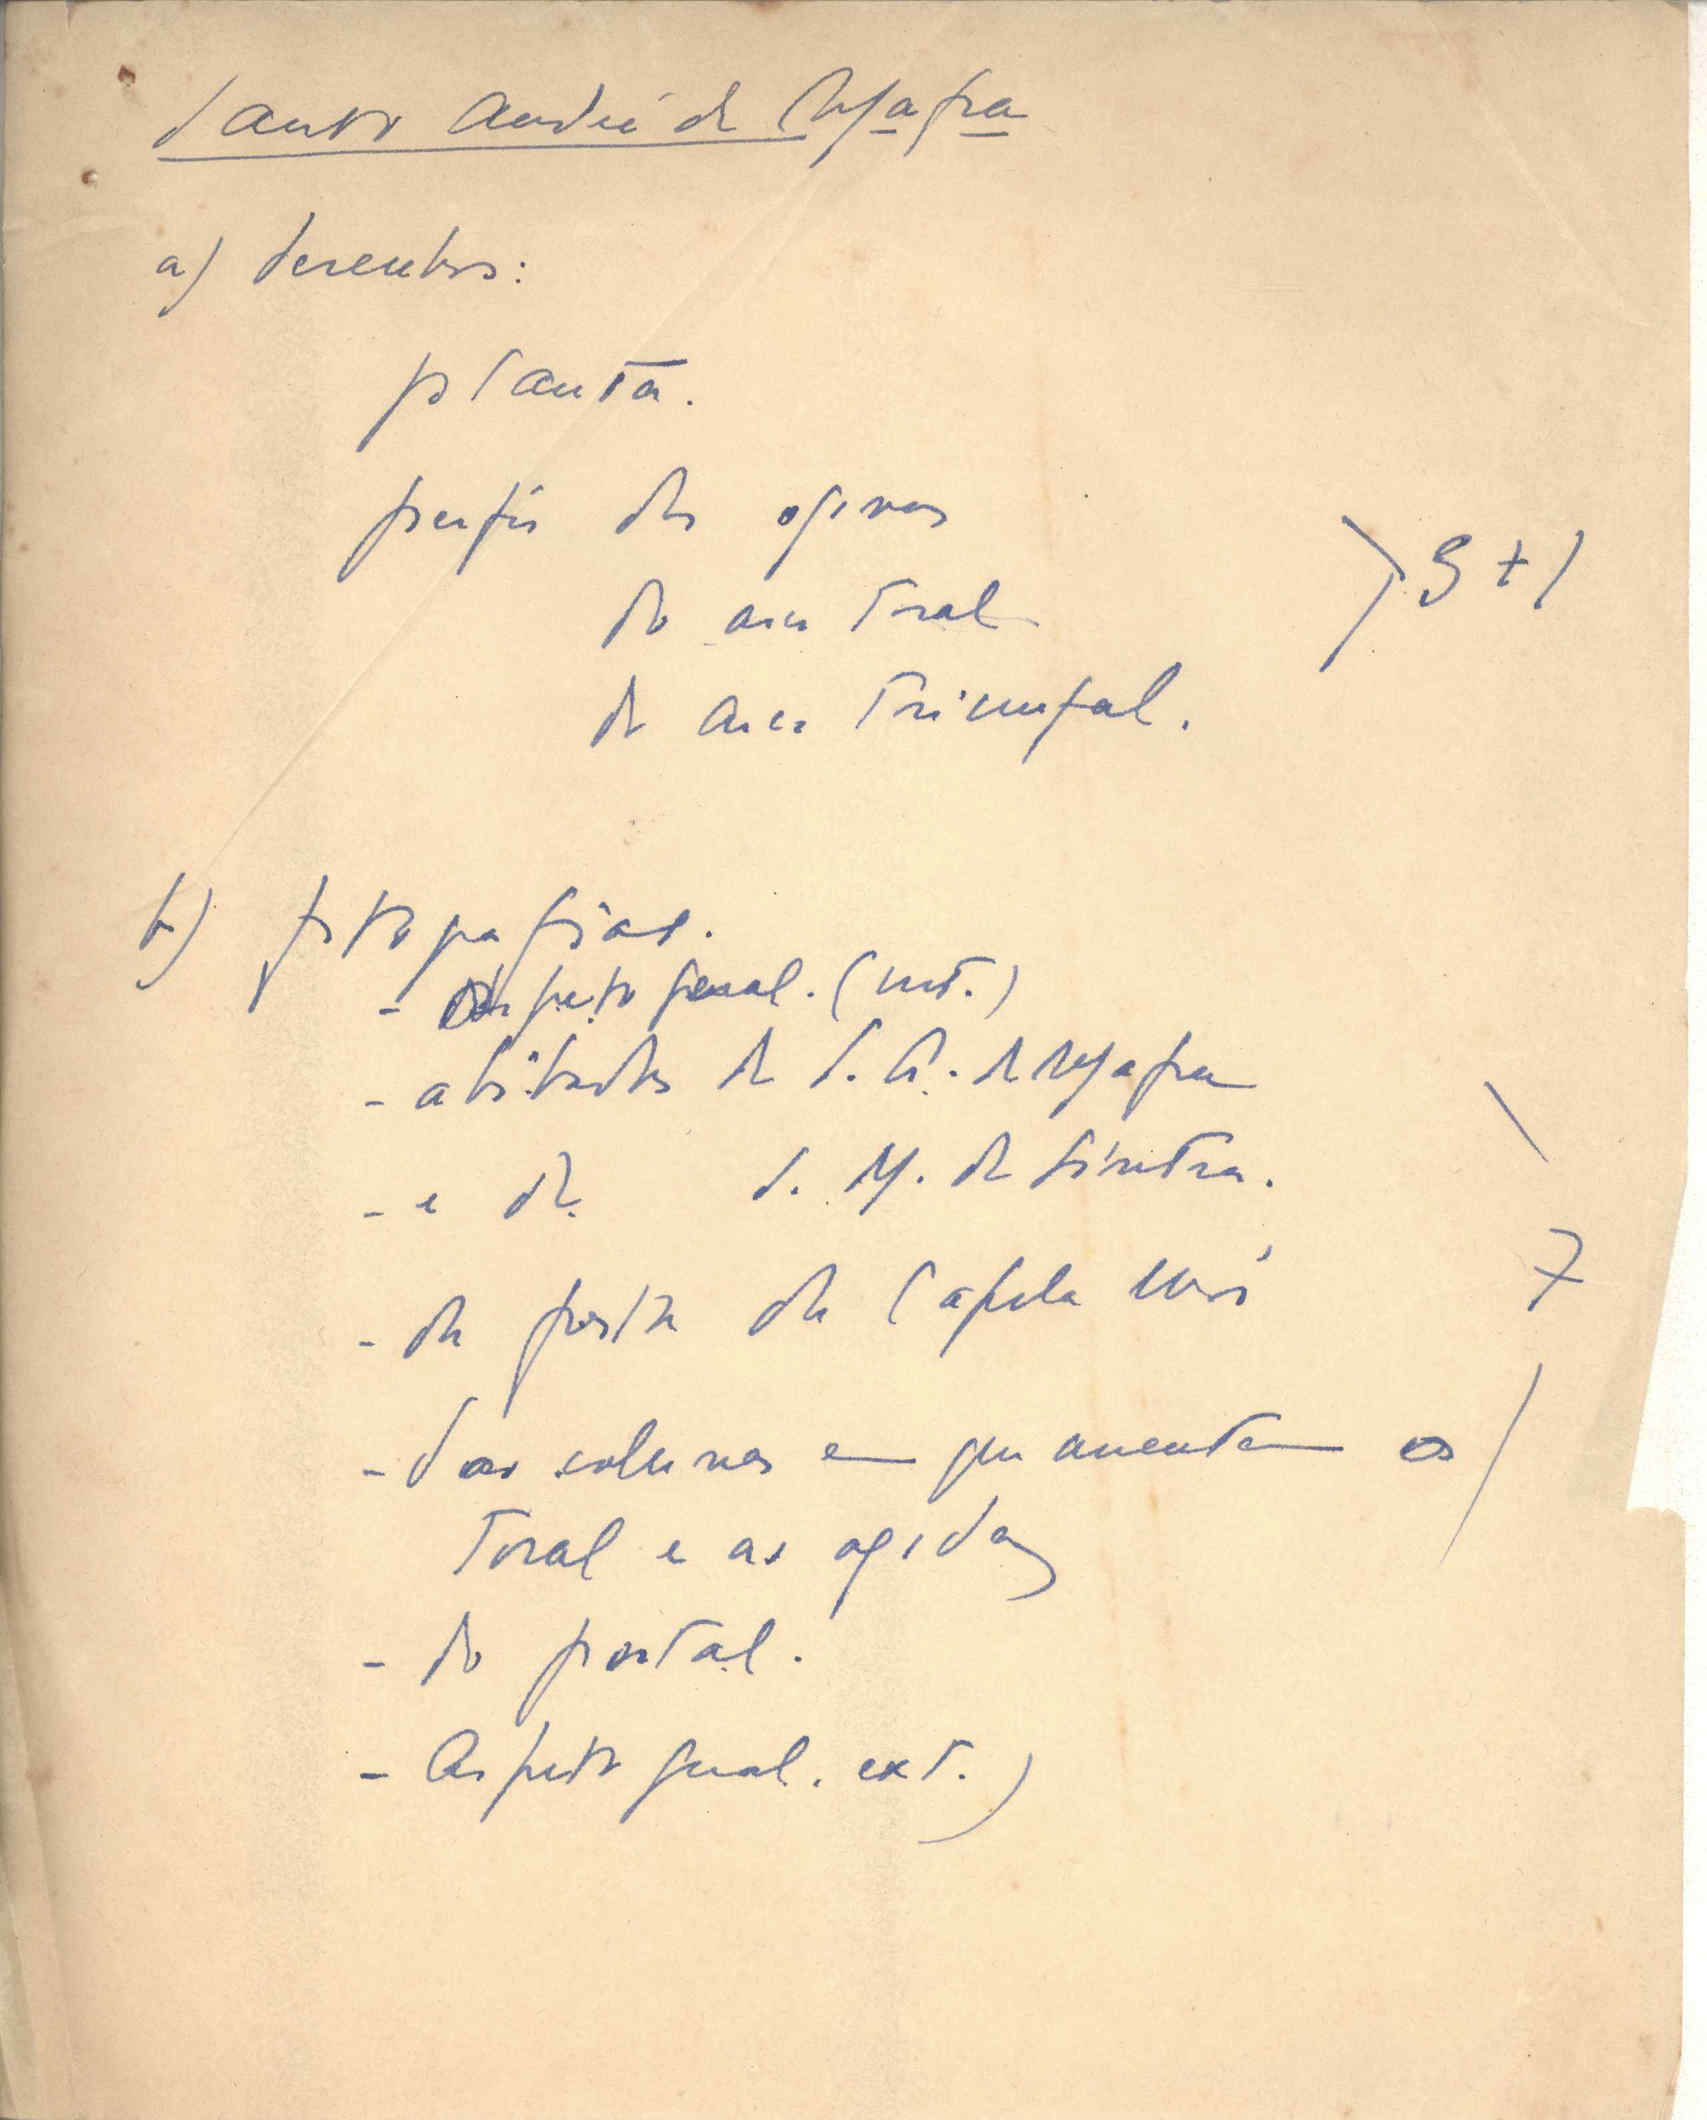 Santo André de Mafra
a) desenhos:
planta.
perfis das ogivas
do arco toral
do arco triunfal.
3 + 1
b) fotografias.
- Aspecto geral. (int.)
- abóbadas de S. A. de Mafra
- e de S. M. de Sintra.
- da porta da Capela mor
7
- das colunas em que assentam os
toral e as ogivas
- do portal.
- Aspecto geral. ext.)